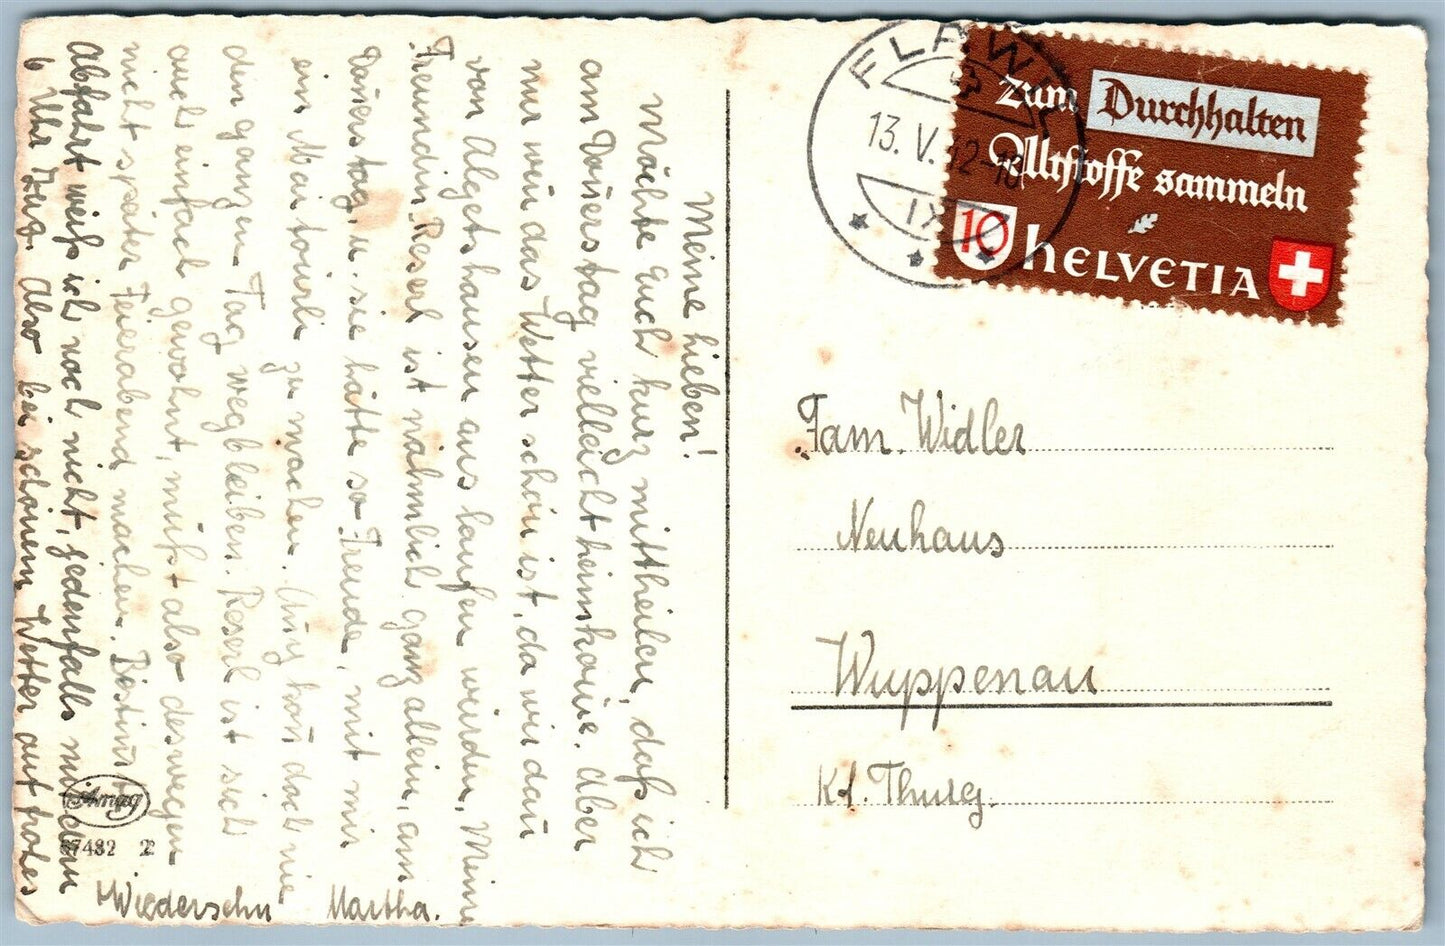 Meine Lieben!
Möchte Euch kurz mittheilen, daß ich
am Dauerstag vielleicht heimkome. Aber
nur wen das Wetter schön ist, da wir dan
von Algetshausen aus laufen würden, Meine
Freundin Reserl ist nähmlich ganz allein, am
Dauerstag, u. sie hätte so Freude, mit mir
ein Maitouerli zu machen. kan doch nie
den ganzen Tag wegbleiben. Reserl ist sich
auch einfach gewohnt, müßt also deswegen
nicht später Feierabend machen. Bestimmt
Abfahrt weiß ich noch nicht, jedenfalls mi dem
6 Uhr Zug. Also bei schönem Wetter auf frohes
"Wiedersehn" Martha.
Amag
67482 2
FLAWIL
13. V. 42-18
IX
zum Durchhalten
Altstoffe sammeln
10 HELVETIA
Fam. Widler
Neuhaus
Wuppenau
Kt. Thurg.